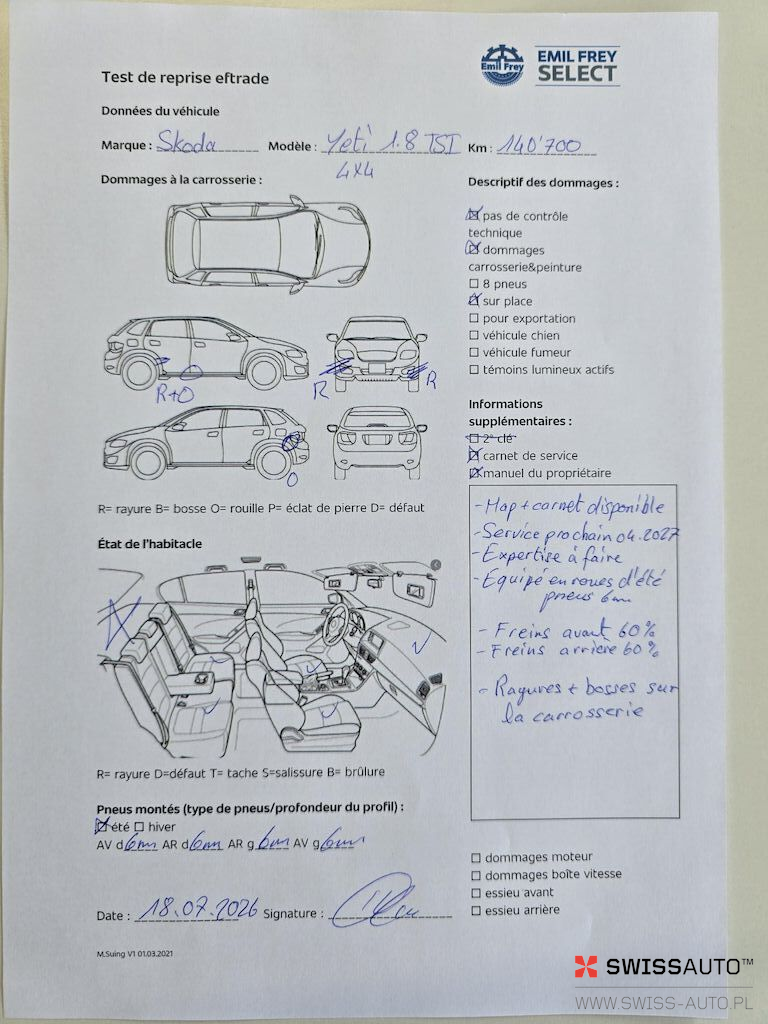 Test de reprise eftrade
Emil Frey
EMIL FREY
SELECT
Données du véhicule
Marque : Skoda Modèle : Yeti 1.8 TSI Km : 140'700
4x4
Dommages à la carrosserie :
R+O
R
R
O
R= rayure B= bosse O= rouille P= éclat de pierre D= défaut
État de l'habitacle
R= rayure D=défaut T= tache S=salissure B= brûlure
Pneus montés (type de pneus/profondeur du profil) :
été hiver
AV d 6mm AR d 6mm AR g 6mm AV g 6mm
Date : 18.07.2026 Signature :
M.Suing V1 01.03.2021
Descriptif des dommages :
pas de contrôle
technique
dommages
carrosserie&peinture
8 pneus
sur place
pour exportation
véhicule chien
véhicule fumeur
témoins lumineux actifs
Informations
supplémentaires :
2e clé
carnet de service
manuel du propriétaire
- Map + carnet disponible
- Service prochain 04.2027
- Expertise à faire
- Equipé en roues d'été
pneus 6mm
- Freins avant 60%
- Freins arrière 60%
- Rayures + bosses sur
la carrosserie
dommages moteur
dommages boîte vitesse
essieu avant
essieu arrière
SWISSAUTO™
WWW.SWISS-AUTO.PL